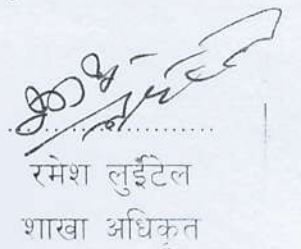 ....................
रमेश लुईटेल
शाखा अधिकृत